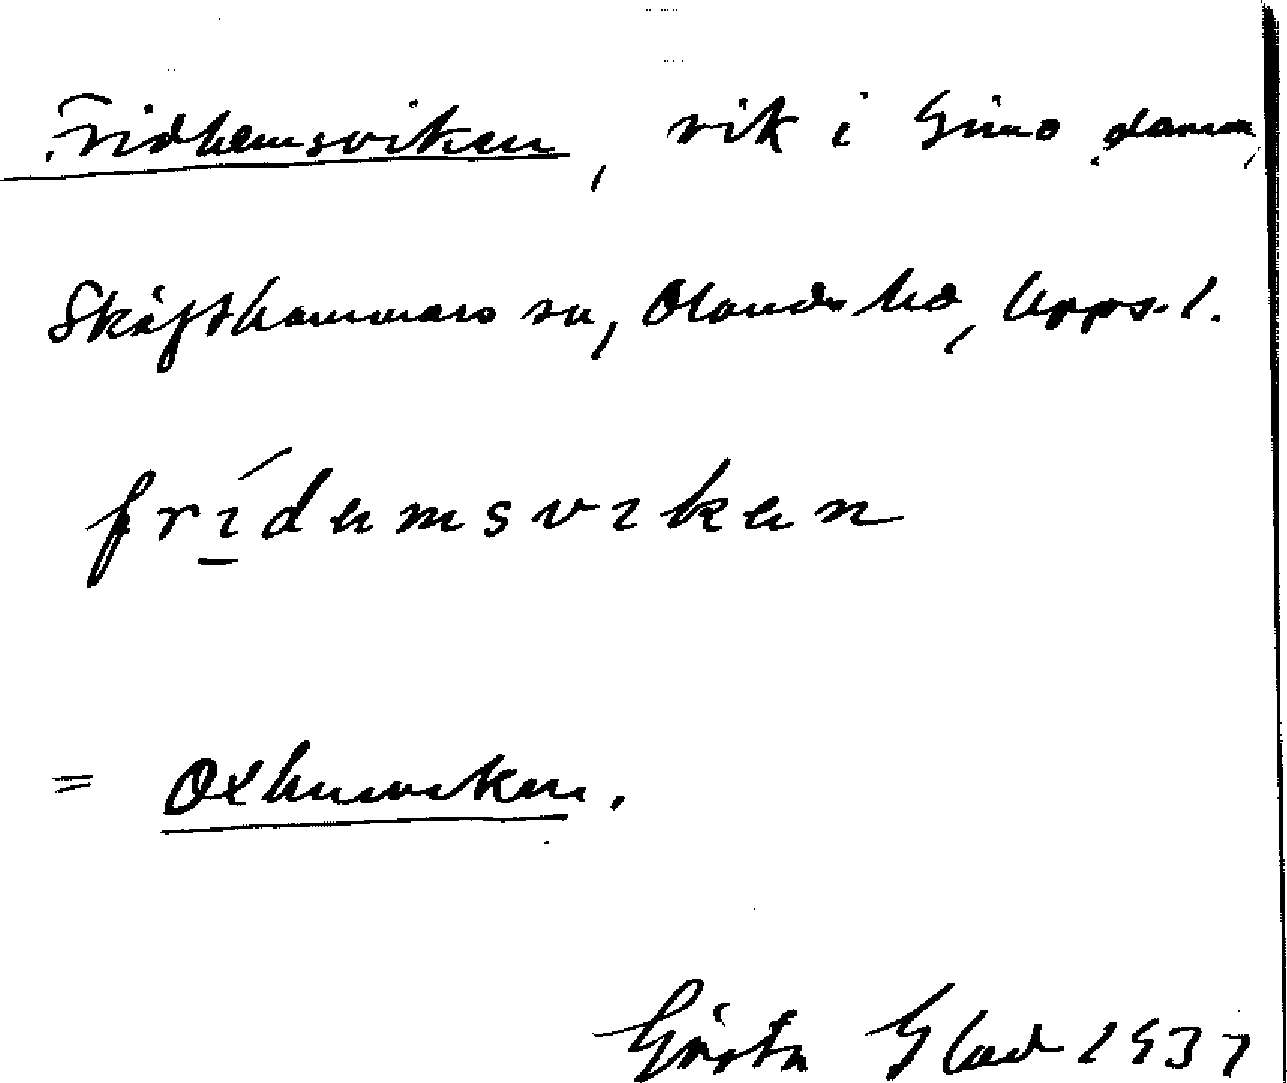 Fridhemsviken, vik i Gimo damm,
Skäfthammars sn, Olands hd, Upps. l.
frídemsviken
= Oxhusviken.
Gösta Glad 1937